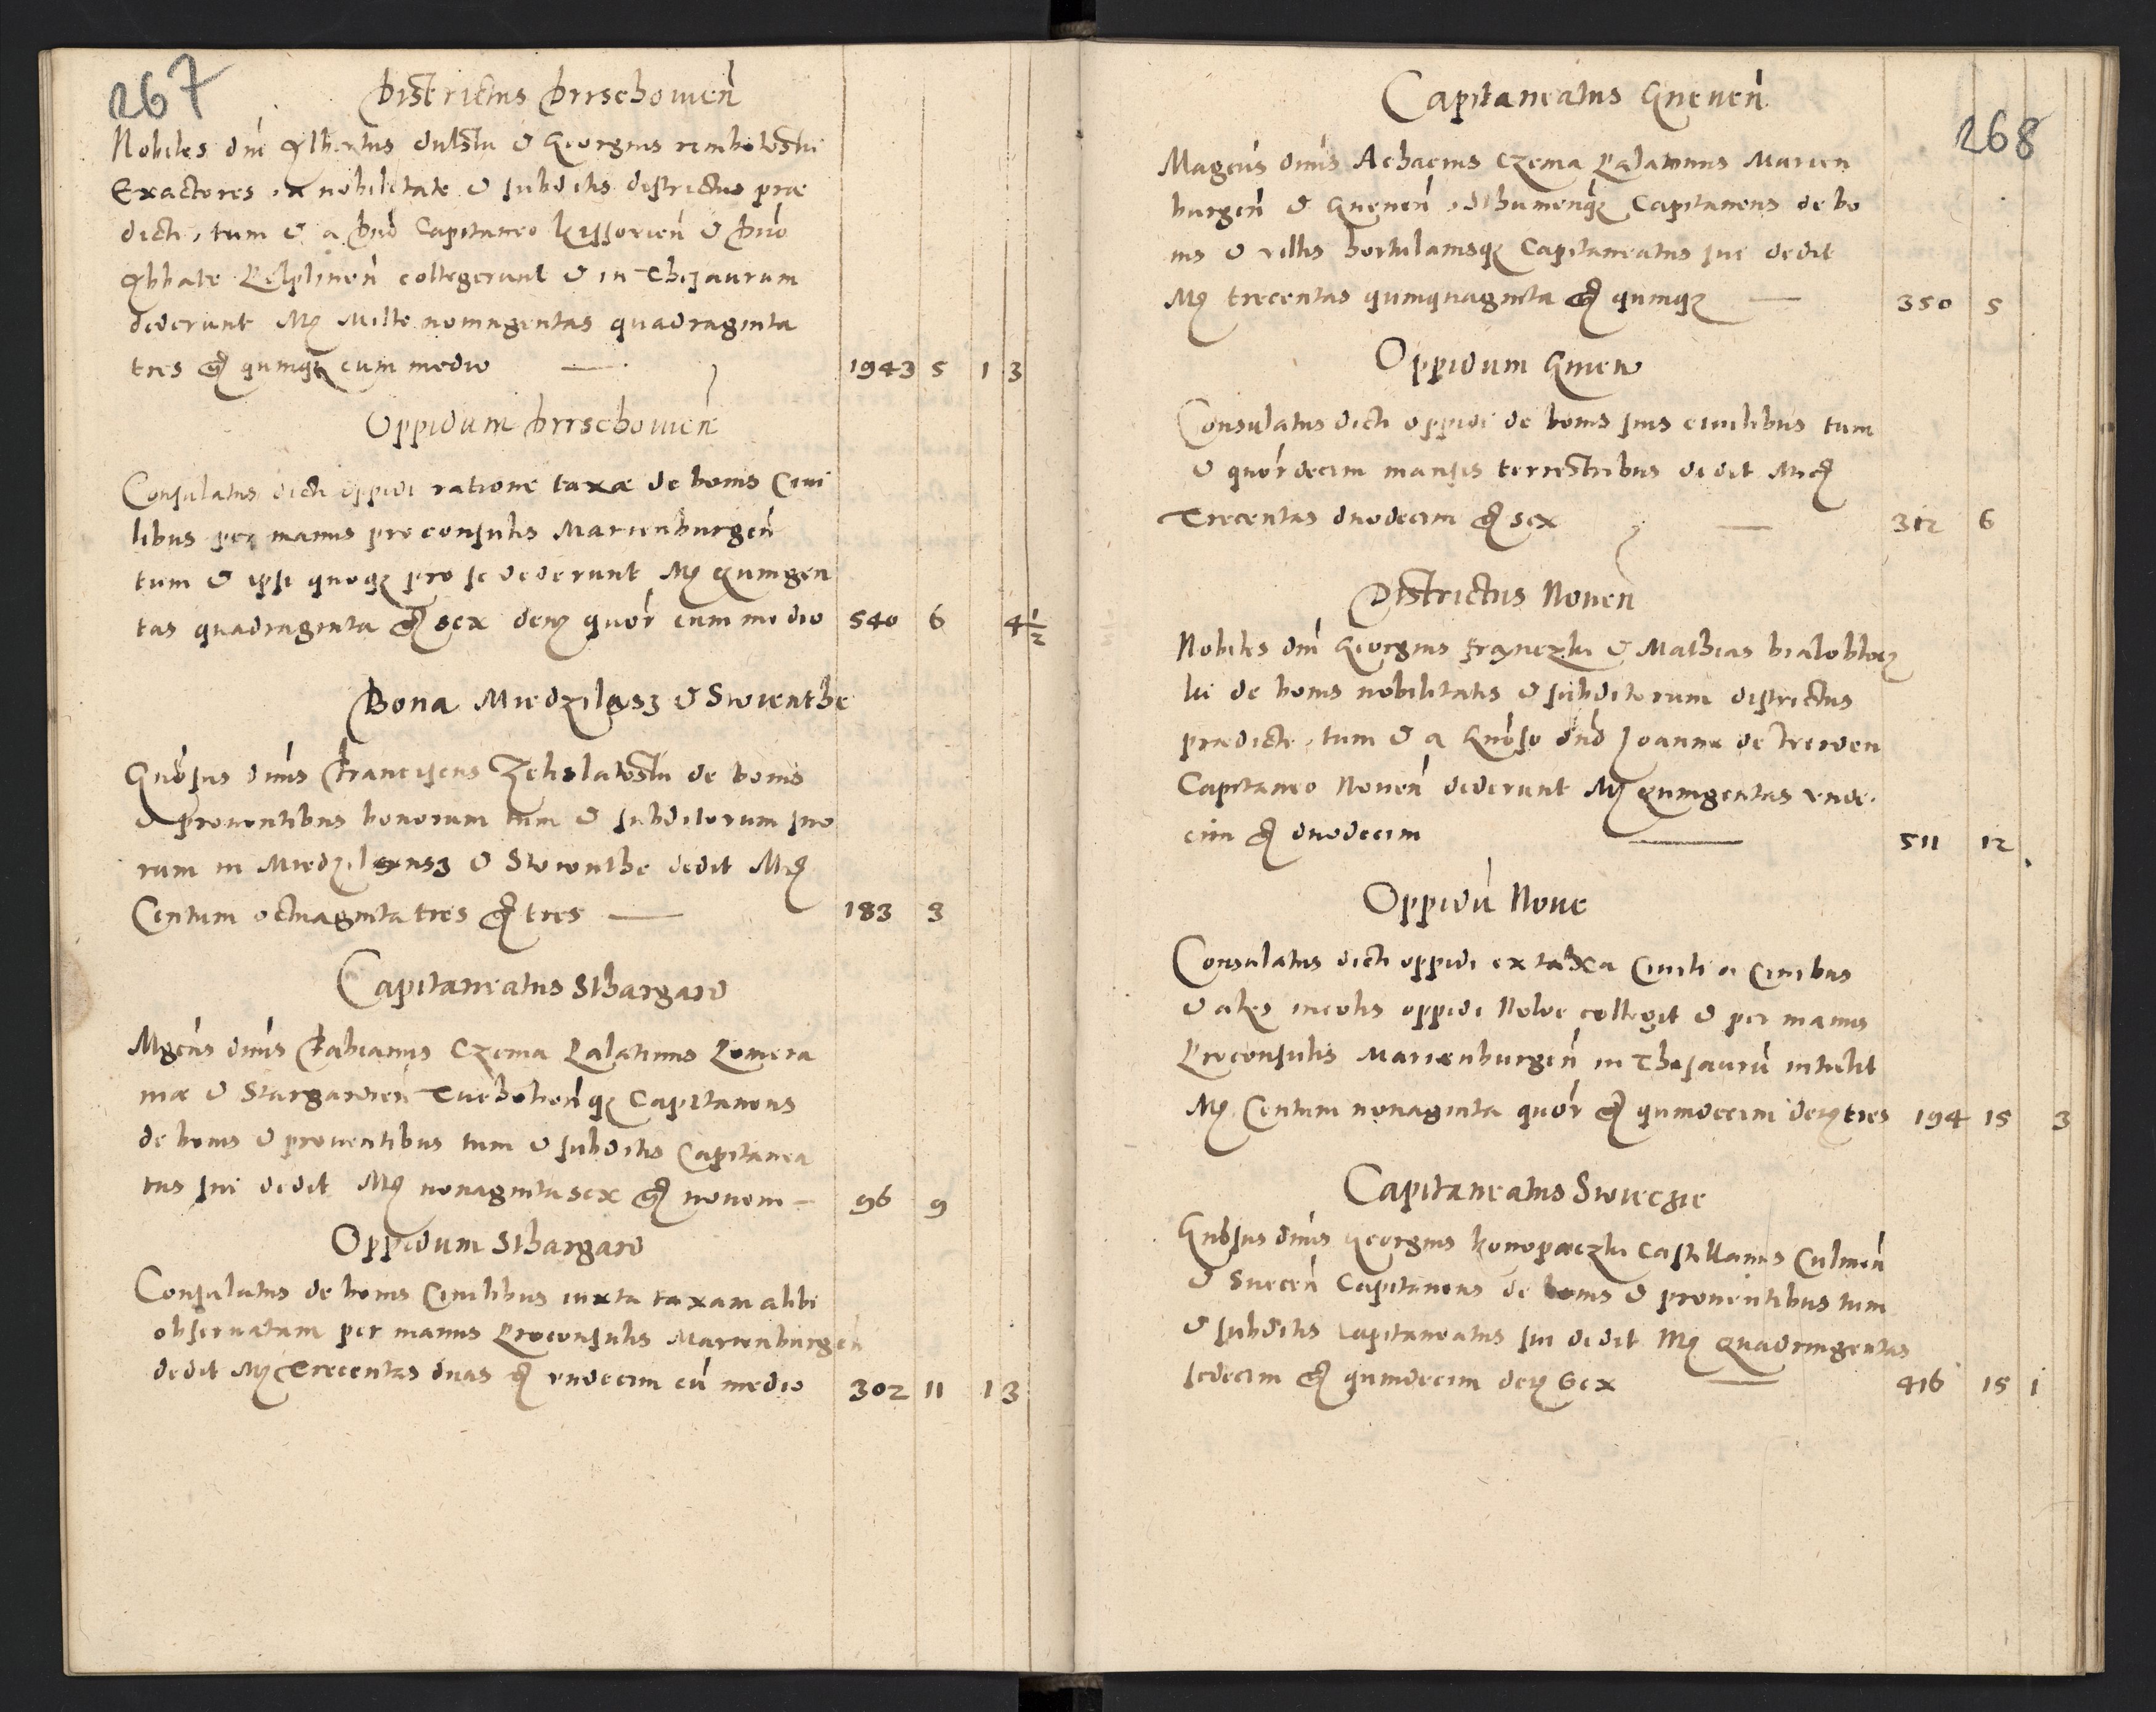 267
Districtus Dirschouien̄
Nobiles dn̄i Albertus dulski & Georgius rembowski
Exactores ex nobilitate & subditis districtus præ
dicti, tum & a Dn̄o Capitaneo kissovien̄ & Dn̄o
Abbate Pelplinen̄ collegerunt & in Thesaurum
dederunt Mȝ Mille nonningentas quadraginta
tres gȝ quinqȝ cum medio — 1943 5 1 3
Oppidum Dirschouien̄
Consulatus dicti oppidi ratione taxæ de bonis Ciui
libus per manus preconsulis Marienburgen̄
tum & ipsi quoqȝ pro se dederunt Mȝ Quingen
tas quadraginta gȝ sex denȝ quor cum medio 540 6 4 1/2
Bona Miedzilasz & Swienthe
Gn̄osus dn̄us Franciscus Zelislawski de bonis
& prouentibus bonorum tum & subditorum suo
rum in Miedzilensz & Swienthe dedit Mȝ
Centum octuaginta tres gȝ tres — 183 3
Capitaneatus Sthargard
Mgcūs dn̄us Fabianus Czema Palatinus Pomera
niæ & Stargardien̄ Tucholien̄qȝ Capitaneus
de bonis & prouentibus tum & subditis Capitanea
tus sui dedit Mȝ nonaginta sex gȝ nouem — 96 9
Oppidum Sthargard
Consulatus de bonis Ciuilibus iuxta taxam alibi
obseruatam per manus Proconsulis Marienburgen
dedit Mȝ Trecentas duas gȝ vndecim cū medio 302 11 1 3
268
Capitaneatus Gneuen̄
Magcūs dn̄us Achacius Czema Palatinus Marien
burgen̄ & Gneuen̄ Capitaneus de bo
nis & villis hortulanisqȝ Capitaneatus sui dedit
Mȝ trecentas quinquaginta gȝ quinqȝ — 350 5
Oppidum Gniew
Consulatus dicti oppidi de bonis suis ciuilibus tum
& quordecim mansis terrestribus dedit Mȝ
Trecentas duodecim gȝ sex — 312 6
Districtus Nouen̄
Nobiles dn̄i Georgius & Mathias bialobloȝ
ki de bonis nobilitatis & subditorum districtus
prædicti, tum & a Gn̄oso dn̄o Joanne de Trewen
Capitaneo Nouen̄ dederunt Mȝ Quingentas vnde
cim gȝ duodecim — 511 12
Oppidū Noue
Consulatus dicti oppidi ex taxa Ciuili a Ciuibus
& incolis oppidi Nowe collegit & per manus
Proconsulis Marienburgen̄ in Thesaurū intulit
Mȝ Centum nonaginta quor gȝ quindecim denȝ tres 194 15 3
Capitaneatus Swieczie
Gn̄osus dn̄us Georgius konopaczki Castellanus Culmen̄
& Suecen̄ Capitaneus de bonis & prouentibus tum
& subditis Capitaneatus sui dedit Mȝ Quadringentas
sedecim gȝ quindecim denȝ Sex — 416 15 1